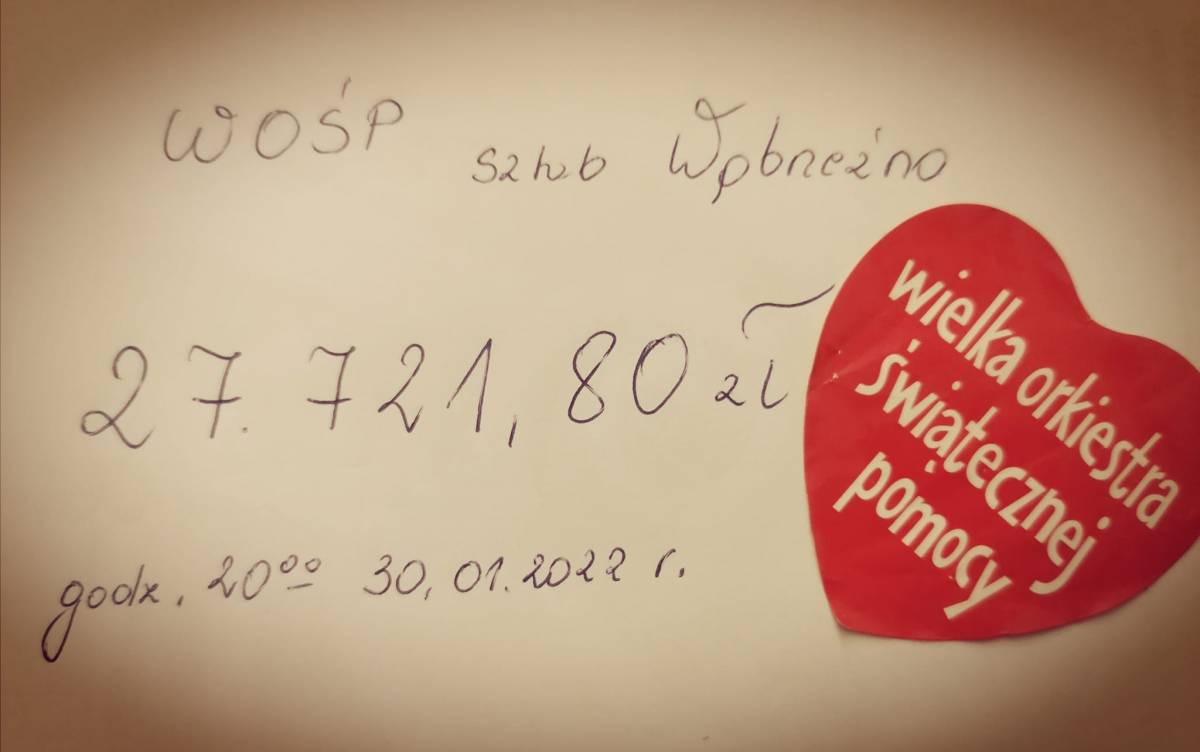 WOŚP sztab Wąbrzeźno
27.721,80 zł
godz. 20⁰⁰ 30.01.2022 r.
wielka orkiestra
świątecznej
pomocy